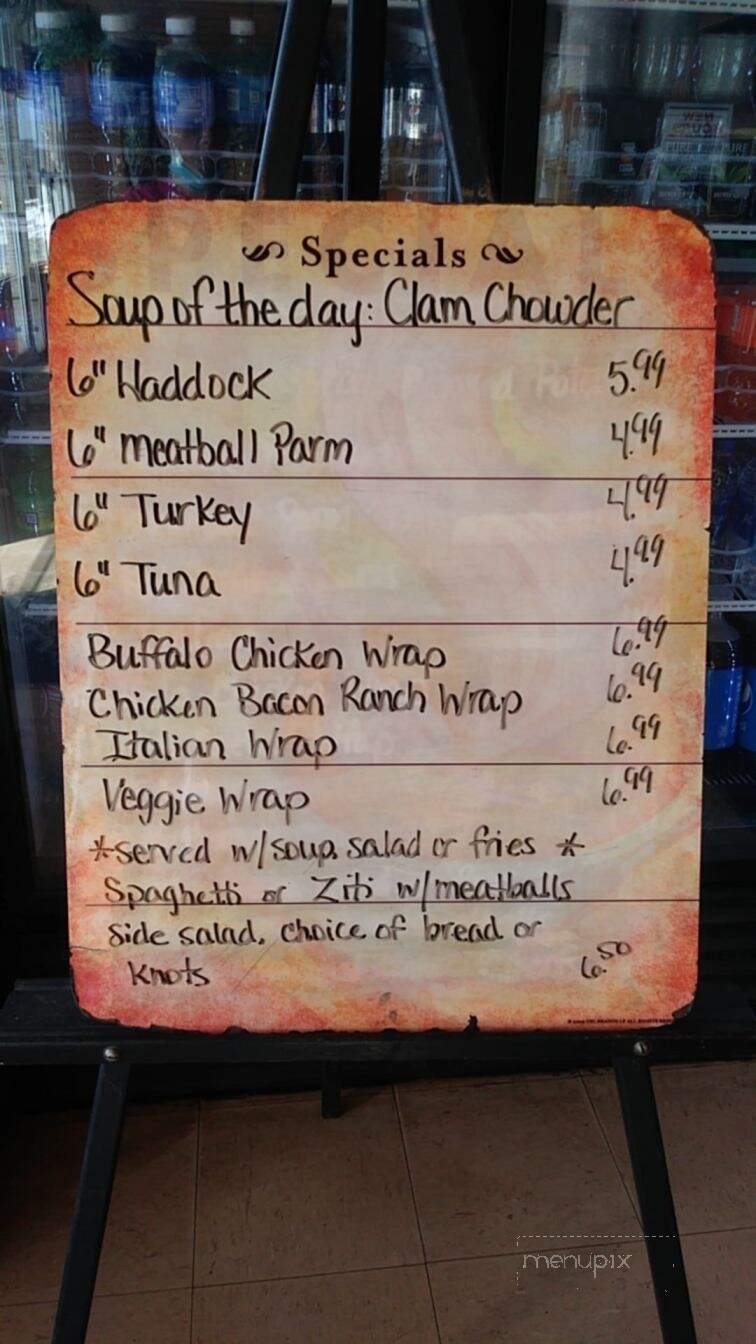 Specials
Soup of the day: Clam Chowder
6" Haddock 5.99
6" Meatball Parm 4.99
6" Turkey 4.99
6" Tuna 4.99
Buffalo Chicken Wrap 6.99
Chicken Bacon Ranch Wrap 6.99
Italian Wrap 6.99
Veggie Wrap 6.99
*served w/soup, salad or fries *
Spaghetti or Ziti w/meatballs
Side salad, choice of bread or
knots 6.50
menupix